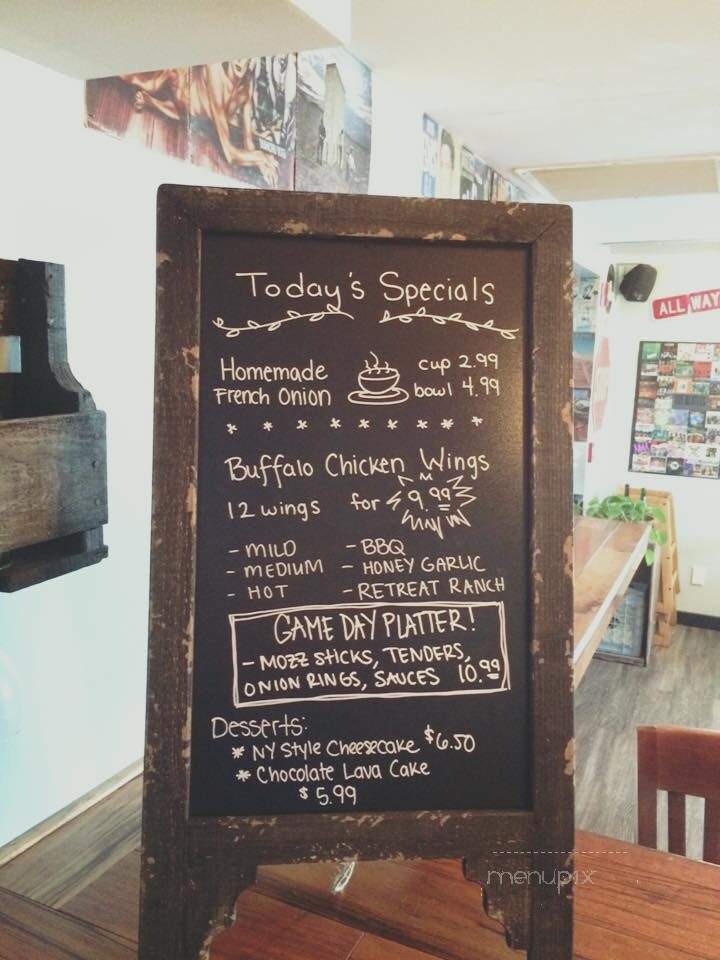 Today's Specials
Homemade French Onion
cup 2.99
bowl 4.99
* * * * * * * *
Buffalo Chicken Wings
12 wings for 9.99
- MILD
- MEDIUM
- HOT
- BBQ
- HONEY GARLIC
- RETREAT RANCH
GAME DAY PLATTER!
- MOZZ STICKS, TENDERS,
ONION RINGS, SAUCES 10.99
Desserts:
* NY Style Cheesecake $6.50
* Chocolate Lava Cake
$ 5.99
ALL WAY
menupix